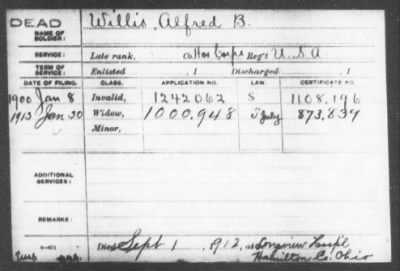 DEAD
NAME OF SOLDIER: Willis, Alfred B.
SERVICE: Late rank, Co. Hos Corps Reg't U.S.A
TERM OF SERVICE: Enlisted , 1 Discharged , 1
DATE OF FILING. CLASS. APPLICATION NO. LAW. CERTIFICATE NO.
1900 Jan 8 Invalid, 1242062 S 1108.196
1913 Jan 30 Widow, 1000.948 July 873.837
Minor,
ADDITIONAL SERVICES:
REMARKS:
Died Sept 1 1912, at Longview Hospl
Hamilton Co. Ohio